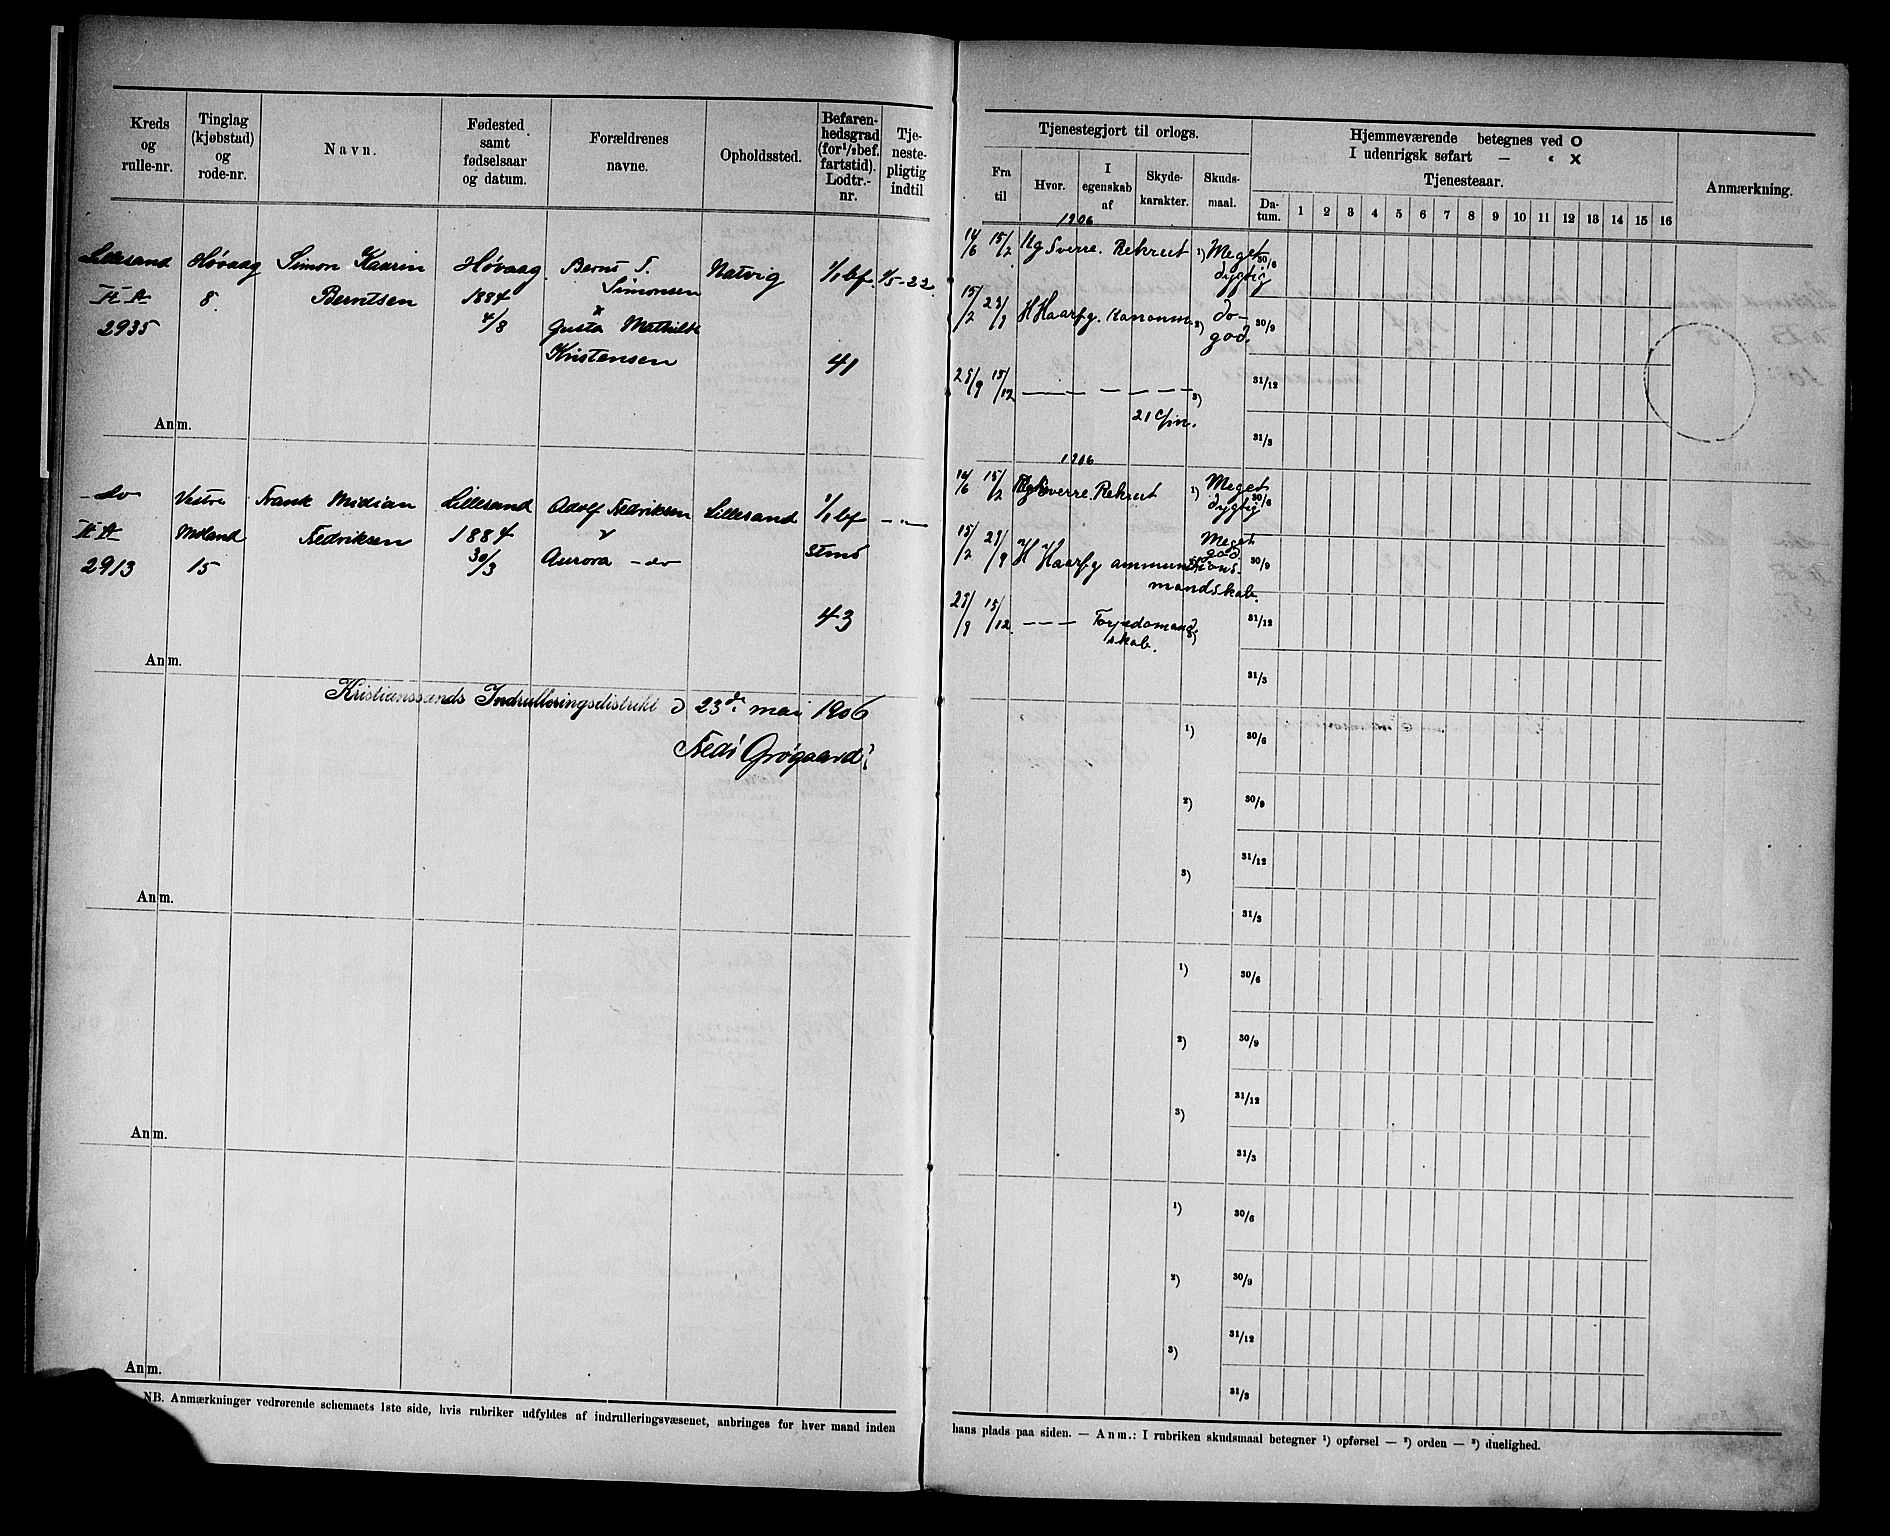 Kreds og rulle-nr.
Tinglag (kjøbstad) og rode-nr.
Navn.
Fødested samt fødselsaar og datum.
Forældrenes navne.
Opholdssted.
Befaren-hedsgrad (for 1/1 bef. fartstid). Lodtr.-nr.
Tje-neste-pligtig indtil
Tjenestegjort til orlogs.
Fra til
Hvor.
I egenskab af
Skyde-karakter.
Skuds-maal.
Hjemmeværende betegnes ved O
I udenrigsk søfart — " X
Tjenesteaar.
Da-tum. 1 2 3 4 5 6 7 8 9 10 11 12 13 14 15 16
Anmærkning.
Lillesand
II A
2935
Høvaag
8.
Simon Kaurin
Berntsen
Høvaag
1884
4/8
Bernt T.
Simonsen
Gusta Mathilde
Kristensen
Natvig
1/1 bf.
41
1/5-22.
Anm.
1906
14/6 15/2 Ug Sverre. Rekrut 1) Meget dygtig 30/6
15/2 29/9 H Haarfg. Kanonm. 2) do- god. 30/9
25/9 15/12 — — — — 3) 31/12
21 c/m.
31/3
do
II A
2913
Vestre
Moland
15
Frank Midian
Fredriksen
Lillesand
1884
30/3
Adolf Fredriksen
Aurora - do
Lillesand
1/1 bf
43
— " —
Anm.
1906
14/6 15/2 Sverre. Rekrut 1) Meget dygtig 30/6
15/2 29/9 H Haarfg ammunitions-mandskab. Meget god. 30/9
29/9 15/12 — — — Torpedomand-skab. 3) 31/12
31/3
Kristianssands Indrulleringsdistrikt d 23de mai 1906
Fredr Grøgaard
1) 30/6
2) 30/9
3) 31/12
31/3
Anm.
1) 30/6
2) 30/9
31/12
3)
31/3
Anm.
1) 30/6
2) 30/9
31/12
3)
31/3
Anm.
NB. Anmærkninger vedrørende schemaets 1ste side, hvis rubriker udfyldes af indrulleringsvæsenet, anbringes for hver mand inden
hans plads paa siden. — Anm.: I rubriken skudsmaal betegner 1) opførsel — 2) orden — 3) duelighed.